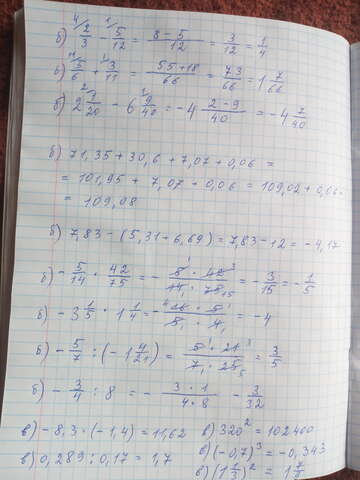 б) 2/3 - 5/12 = 8-5/12 = 3/12 = 1/4
б) 5/6 + 3/11 = 55+18/66 = 73/66 = 1 7/66
б) 2 1/20 - 6 9/40 = -4 2-9/40 = -4 7/40
б) 71,35 + 30,6 + 7,07 + 0,06 =
= 101,95 + 7,07 + 0,06 = 109,02 + 0,06 =
= 109,08
б) 7,83 - (5,31 + 6,69) = 7,83 - 12 = -4,17
б) - 5/14 · 42/75 = - 5 · 42/14 · 75 = - 3/15 = - 1/5
б) -3 1/5 · 1 1/4 = - 16 · 5/5 · 4 = -4
б) - 5/7 : (-1 4/21) = 5 · 21/7 · 25 = 3/5
б) - 3/4 : 8 = - 3 · 1/4 · 8 - 3/32
в) -8,3 · (-1,4) = 11,62 в) 320² = 102400
в) 0,289 : 0,17 = 1,7 в) (-0,7)³ = -0,343
в) (1 1/3)² = 1 7/9